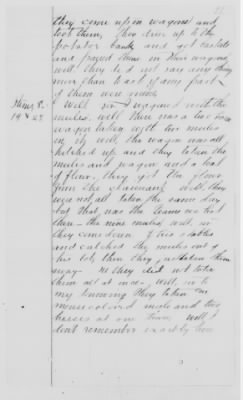 they come up in wagons and
took them, They drive up to the
potatoe bank and got baskets
and
well they did not save any thing
more than that if any part
of them were
Well, in wagons with the
mules. well there was a two horse
wagon taken with two mules
in it well the wagon was all
hitched up and they taken the
mules and wagon and a load
of flour. they got the flour
from the claimant Well, they
were not all taken the same day
but that was the teams we lost
then - the nine mules, well, so
they come down to his stables
and catched the mules out of
his lot, then they, taken them
away - no they did not take
them all at once, well, so to
my knowing they taken one
mouse colored mule and two
horses at one time, Well, I
dont remember exactly how